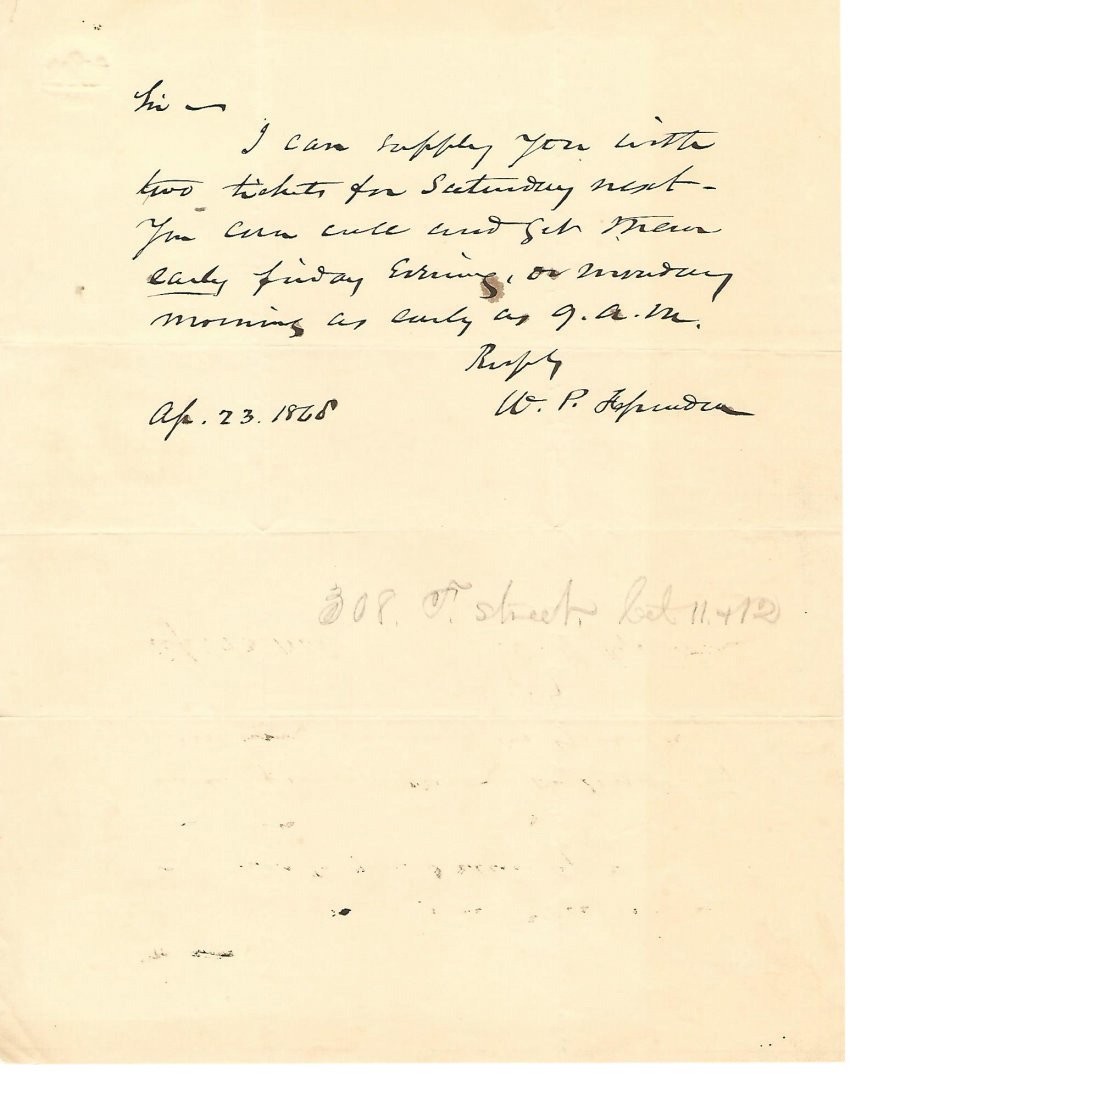 Sir —
I can supply you with
two tickets for Saturday next -
You can call and get them
early friday Evening, or monday
morning as early as 9. a.m.
Resply
W. P. Fessenden
Ap. 23. 1868
308. F. street. bet 11. + 12